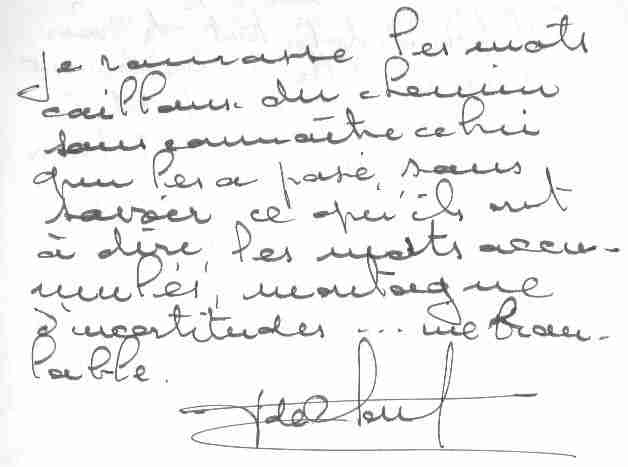 Je ramasse les mots
cailloux du chemin
sans connaître celui
qui les a posé, sans
savoir ce qu'ils ont
à dire, les mots accu-
mulés, montagne
d'incertitudes ... inébran-
lable.